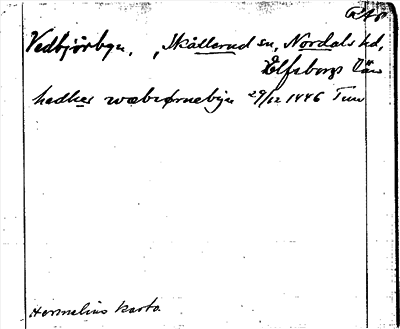 Vedbjörbyn, , Skållerud sn, Nordals hd,
Elfsborgs län
hadher wæbiørnebyn 29/12 1446
Hermelins karta